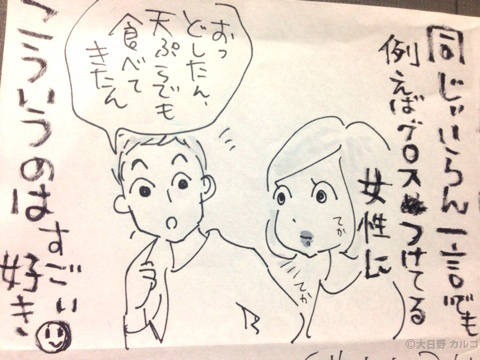 同じいらん一言でも
例えばグロスつけてる
女性に
おっ
どしたん、
天ぷらでも
食べて
きたん
てか
てか
こういうのは
すごい
好き
©大日野 カルコ